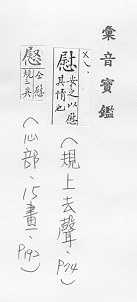 彙音寶鑑
慰 安之以慰其情也
(規上去聲、P74)
慰 仝慰 規三英
(心部、15畫、P192)